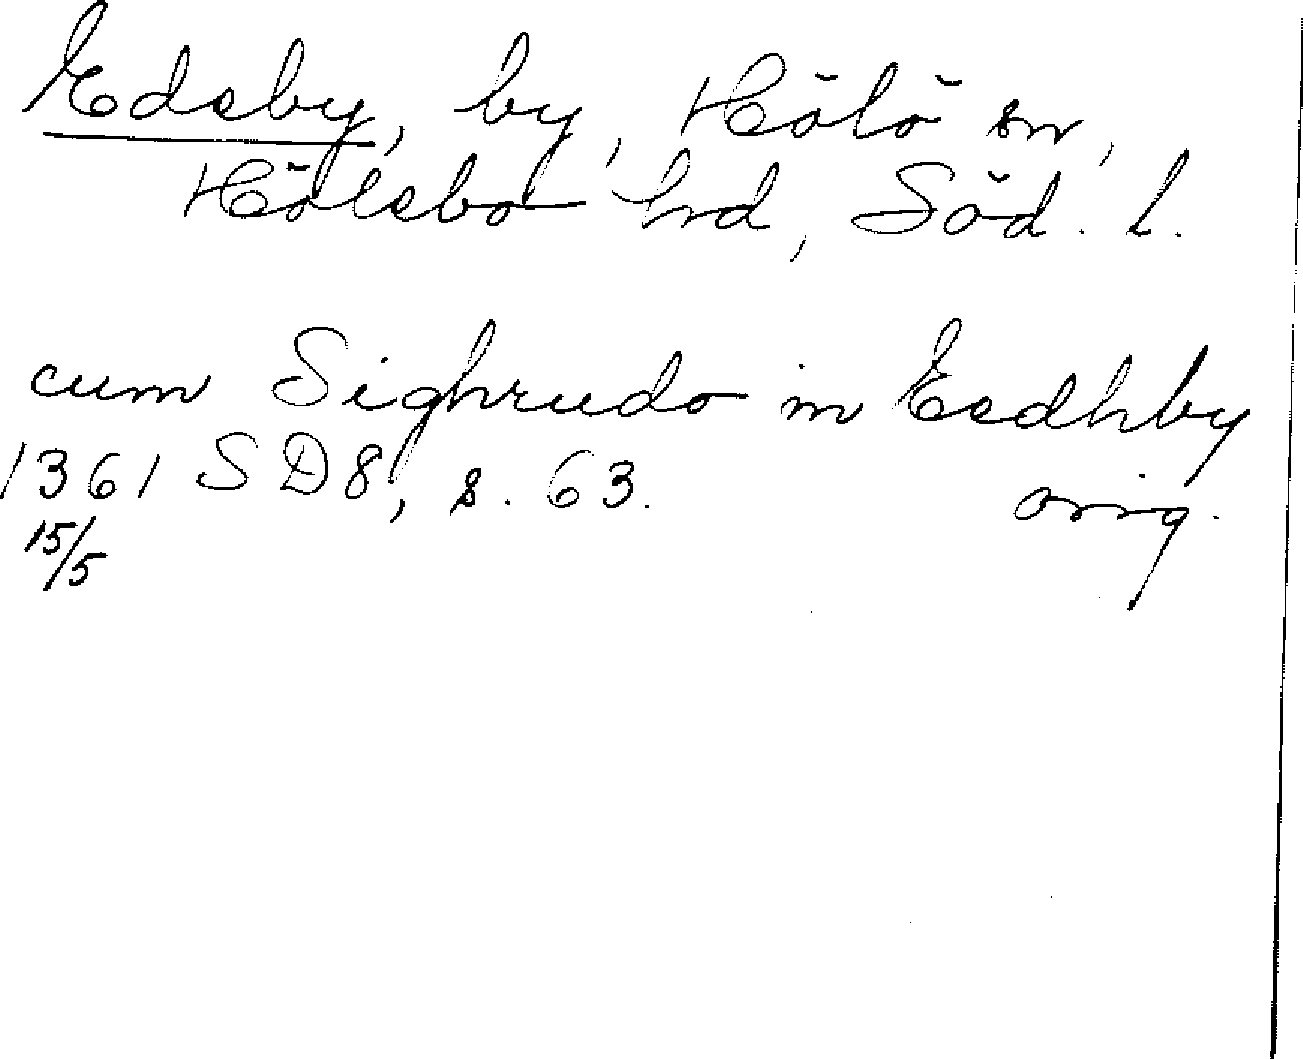 Edsby, by, Hölö sn,
Hölebo hrd, Söd. l.
cum Sighrudo in Eedhby
1361 SD8, s. 63. orig.
15/5